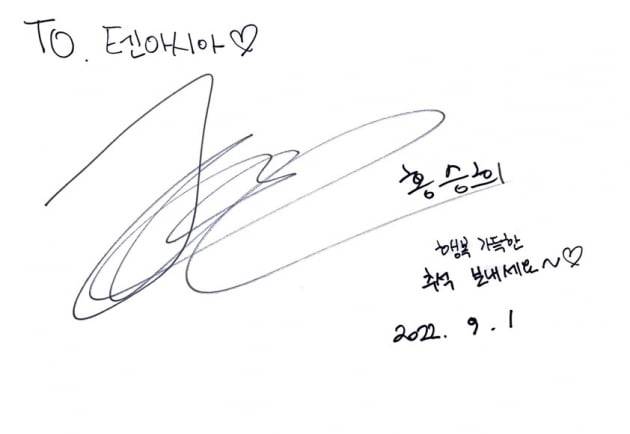 TO. 텐아시아♡
홍승희
행복 가득한
추석 보내세요~♡
2022. 9. 1